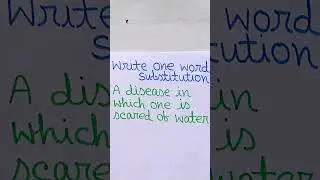 Write one word
substitution
A disease in
which one is
scared of water